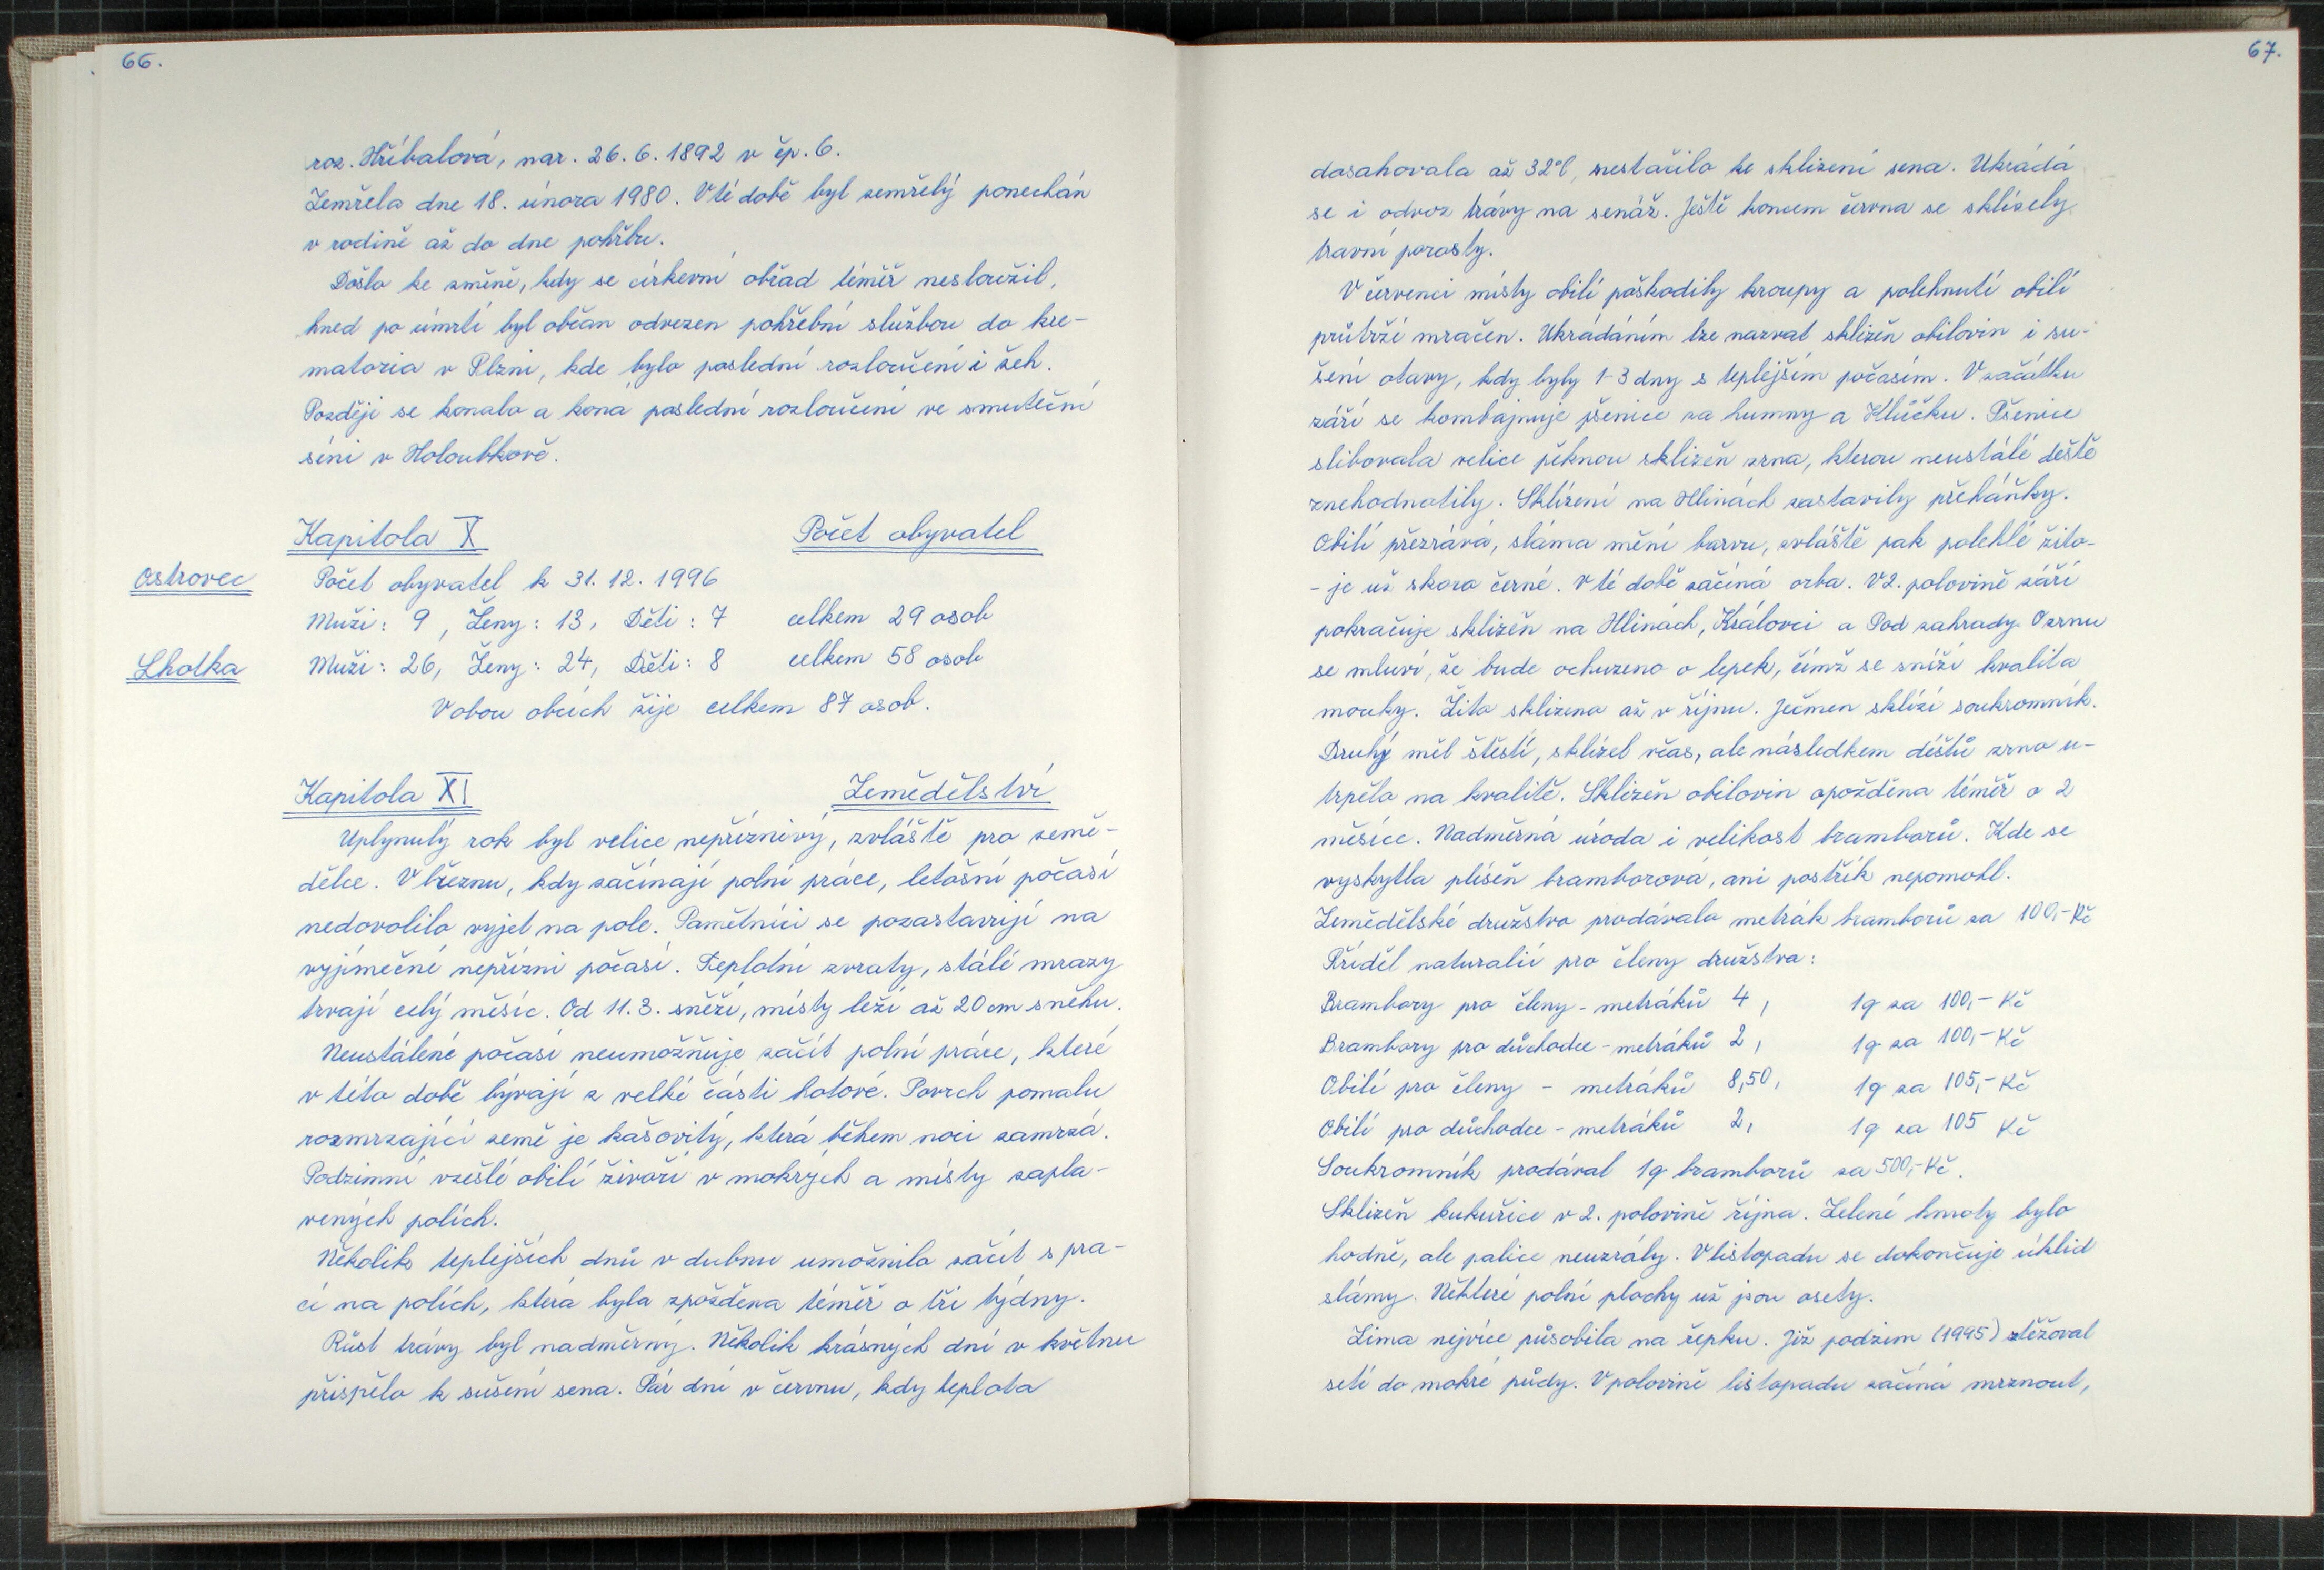 66.
roz. Hříbalová, nar. 26. 6. 1892 v čp. 6.
Zemřela dne 18. února 1980. V té době byl zemřelý ponechán
v rodině až do dne pohřbu.
Došlo ke změně, kdy se církevní obřad téměř nesloužil,
hned po úmrtí byl občan odvezen pohřební službou do kre-
matoria v Plzni, kde bylo poslední rozloučení i žeh.
Později se konalo a koná poslední rozloučení ve smuteční
síni v Holoubkově.
Kapitola X Počet obyvatel
Ostrovec Počet obyvatel k 31. 12. 1996
Muži: 9, Ženy: 13, Děti: 7 celkem 29 osob
Lhotka Muži: 26, Ženy: 24, Děti: 8 celkem 58 osob
V obou obcích žije celkem 87 osob.
Kapitola XI Zemědělství
Uplynulý rok byl velice nepříznivý, zvláště pro země-
dělce. V březnu, kdy začínají polní práce, letošní počasí
nedovolilo vyjet na pole. Pamětníci se pozastavují na
vyjímečné nepřízni počasí. Teplotní zvraty, stálé mrazy
trvají celý měsíc. Od 11. 3. sněží, místy leží až 20 cm sněhu.
Neustálené počasí neumožňuje začít polní práce, které
v této době bývají z velké části hotové. Povrch pomalu
rozmrzající země je kašovitý, která během noci zamrzá.
Podzimní vzešlé obilí živoří v mokrých a místy zapla-
vených polích.
Několik teplejších dnů v dubnu umožnilo začít s pra-
cí na polích, která byla zpožděna téměř o tři týdny.
Růst trávy byl nadměrný. Několik krásných dní v květnu
přispělo k sušení sena. Pár dní v červnu, kdy teplota
67.
dosahovala až 32°C, nestačilo ke sklizení sena. Ukrádá
se i odvoz trávy na senáž. Ještě koncem června se sklízely
travní porosty.
V červenci místy obilí poškodily kroupy a polehnutí obilí
průtrží mračen. Ukrádáním lze nazvat sklizeň obilovin i su-
šení otavy, kdy byly 1-3 dny s teplejším počasím. V začátku
září se kombajnuje pšenice za humny a Klůčku. Pšenice
slibovala velice pěknou sklizeň zrna, kterou neustálé deště
znehodnotily. Sklízení na Hlinách zastavily přeháňky.
Obilí přezrává, sláma mění barvu, zvláště pak polehlé žito-
- je už skoro černé. V té době začíná orba. V 2. polovině září
pokračuje sklizeň na Hlinách, Královci a Pod zahrady. O zrnu
se mluví, že bude ochuzeno o lepek, čímž se sníží kvalita
mouky. Žita sklizena až v říjnu. Ječmen sklízí soukromník.
Druhý měl štěstí, sklízel včas, ale následkem dešťů zrno u-
trpělo na kvalitě. Sklizeň obilovin opožděna téměř o 2
měsíce. Nadměrná úroda i velikost bramborů. Kde se
vyskytla plíseň bramborová, ani postřik nepomohl.
Zemědělské družstvo prodávalo metrák bramborů za 100,- Kč
Příděl naturalií pro členy družstva:
Brambory pro členy - metráků 4, 1q za 100,- Kč
Brambory pro důchodce - metráků 2, 1q za 100,- Kč
Obilí pro členy - metráků 8,50, 1q za 105,- Kč
Obilí pro důchodce - metráků 2, 1q za 105 Kč
Soukromník prodával 1q bramborů za 500,- Kč.
Sklizeň kukuřice v 2. polovině října. Zelené hmoty bylo
hodně, ale palice neuzrály. V listopadu se dokončuje úklid
slámy. Některé polní plochy už jsou osety.
Zima nejvíce působila na řepku. Již podzim (1995) ztěžoval
setí do mokré půdy. V polovině listopadu začíná mrznout,